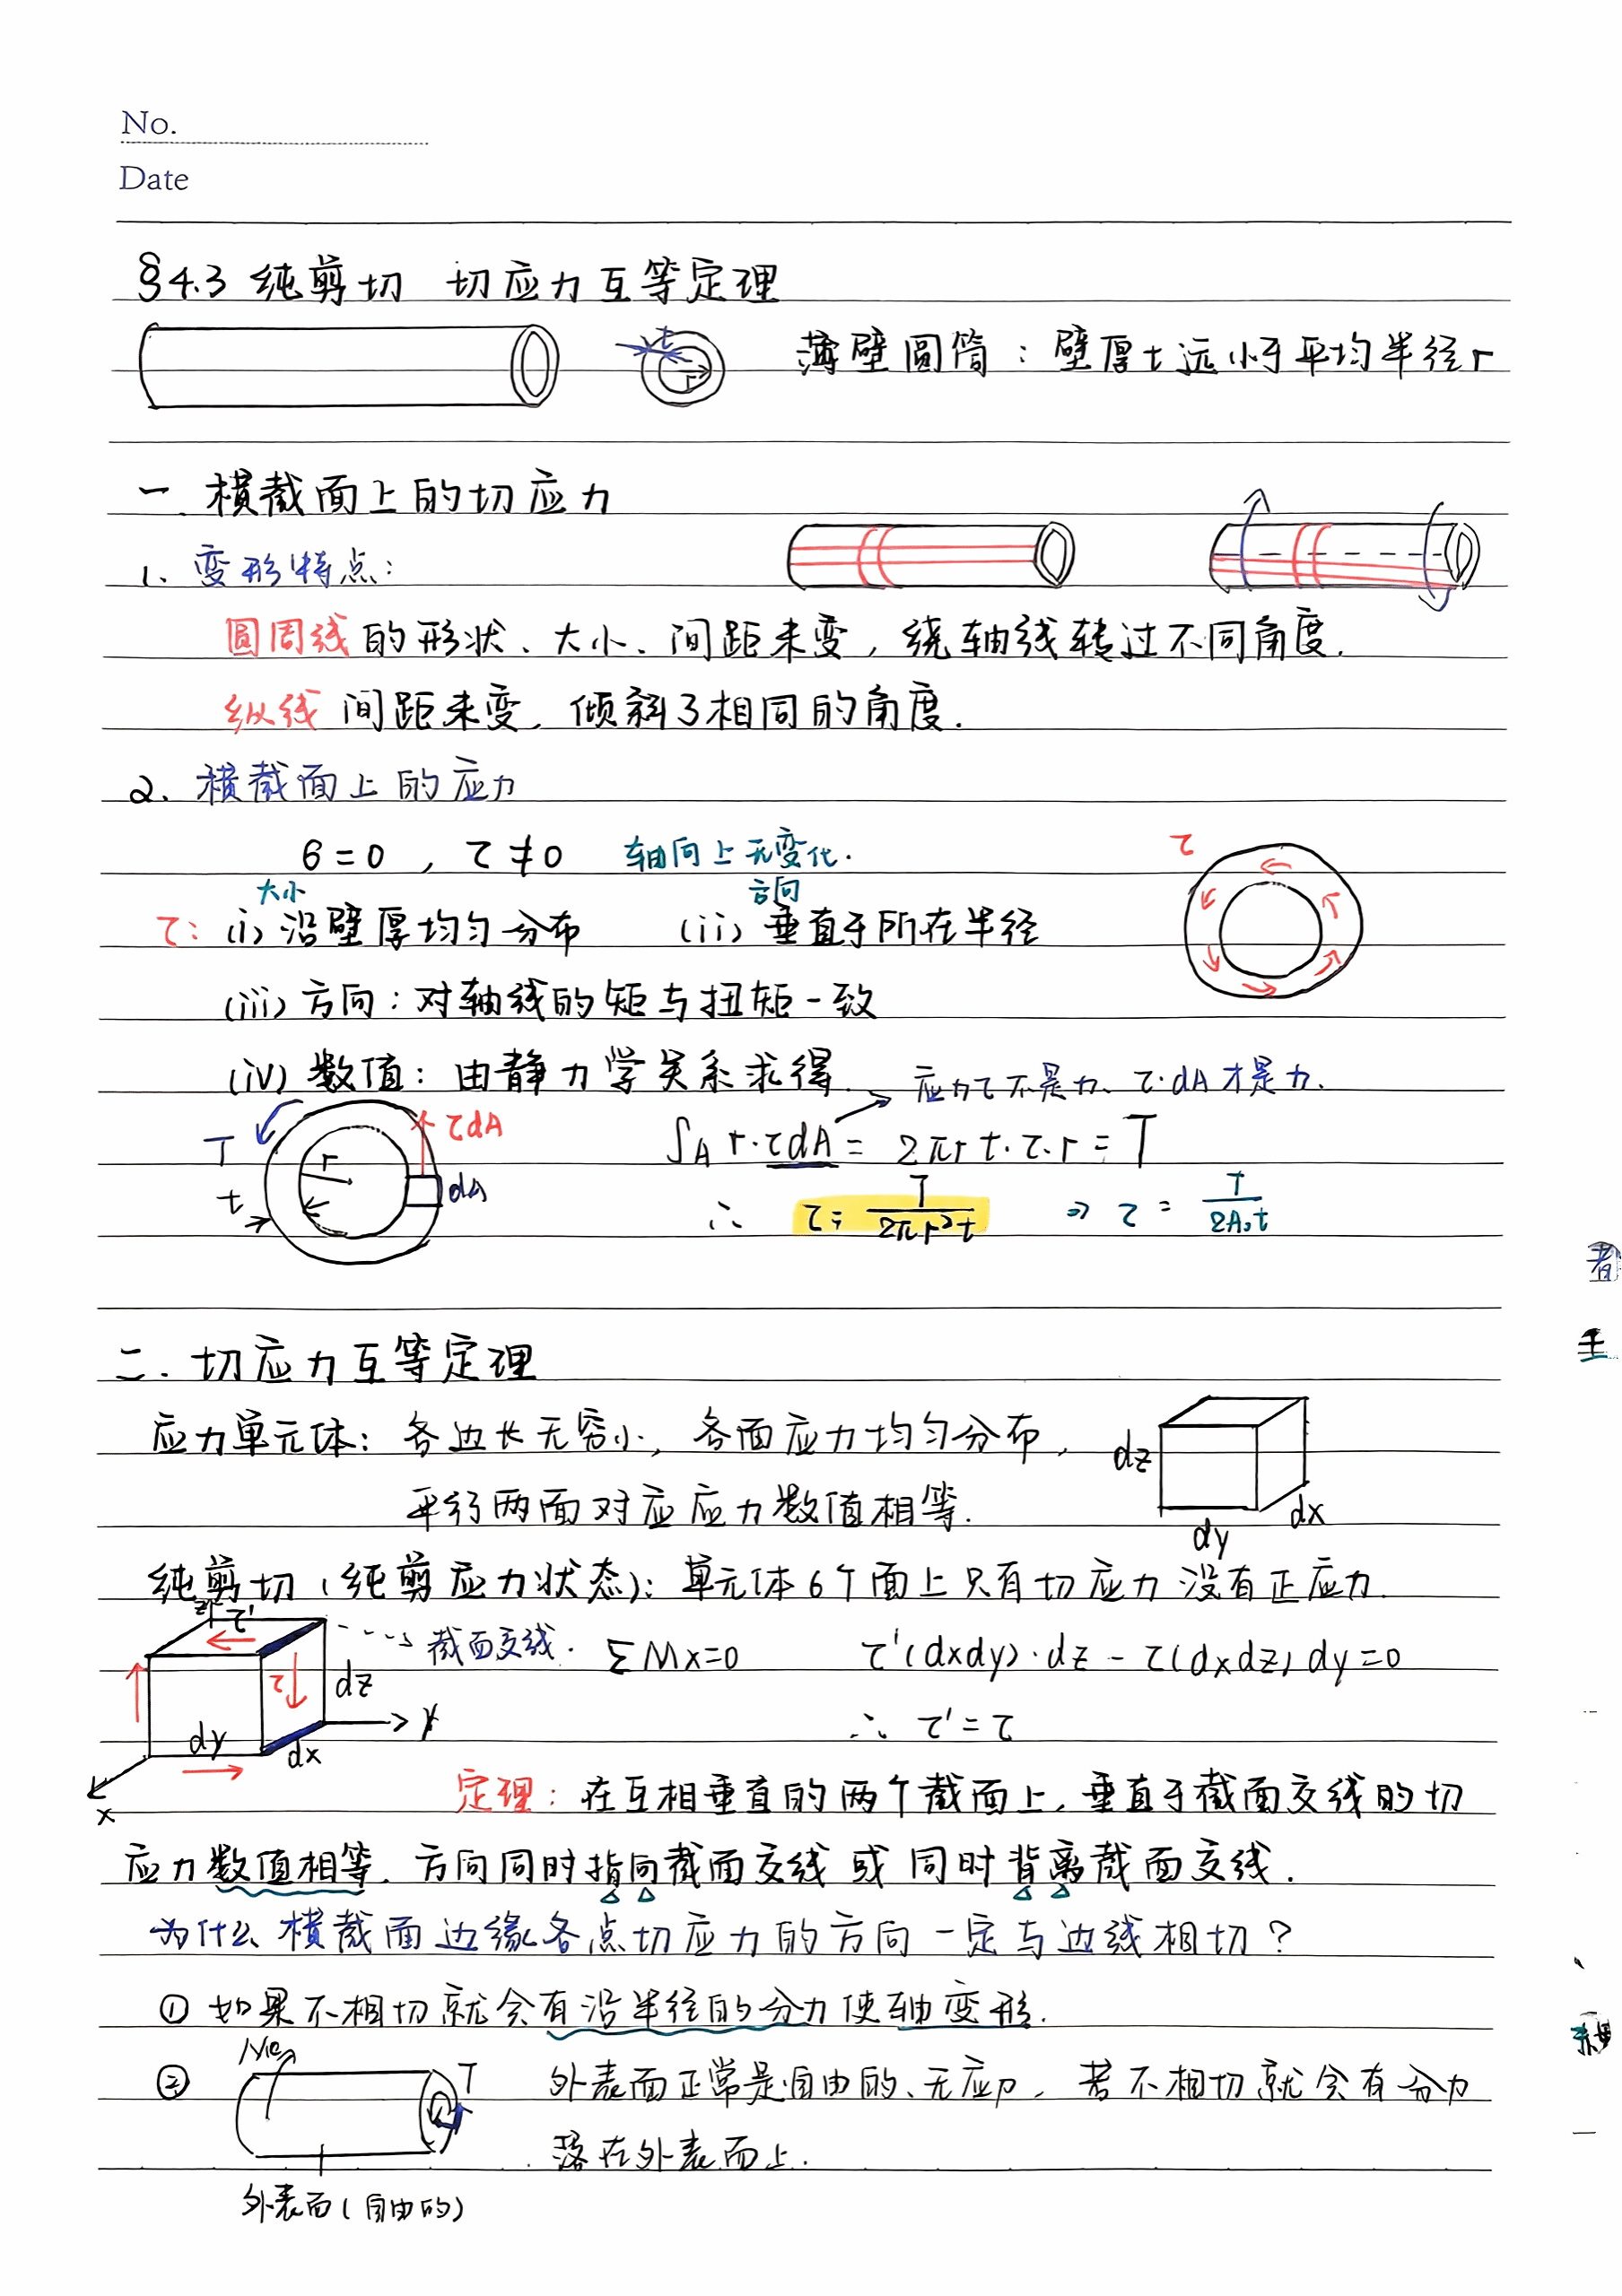 No.
Date
§4.3 纯剪切 切应力互等定理
t
r
薄壁圆筒：壁厚t远小于平均半径r
一. 横截面上的切应力
1、变形特点：
圆周线的形状、大小、间距未变，绕轴线转过不同角度.
纵线 间距未变，倾斜了相同的角度.
2、横截面上的应力
σ=0 , τ≠0 轴向上无变化.
大小 方向
τ: (i) 沿壁厚均匀分布 (ii) 垂直于所在半径
τ
(iii) 方向：对轴线的矩与扭矩一致
(iv) 数值：由静力学关系求得.
应力τ不是力、τ·dA才是力.
T r t τdA dA
∫A r·τdA = 2πrt·τ·r = T
∴ τ = T/2πr²t ⇒ τ = T/2A₀t
者
二. 切应力互等定理
应力单元体：各边长无穷小，各面应力均匀分布，
平行两面对应应力数值相等.
dz dy dx
纯剪切（纯剪应力状态）：单元体6个面上只有切应力 没有正应力.
z τ' τ dz dy dx y x
截面交线. ΣMx=0 τ'(dxdy)·dz - τ(dxdz)dy=0
∴ τ'=τ
定理：在互相垂直的两个截面上，垂直于截面交线的切
应力数值相等，方向同时指向截面交线 或 同时背离截面交线.
为什么横截面边缘各点切应力的方向一定与边线相切？
① 如果不相切就会有沿半径的分力使轴变形.
② Me T 外表面正常是自由的、无应力，若不相切就会有分力
落在外表面上.
外表面（自由的）